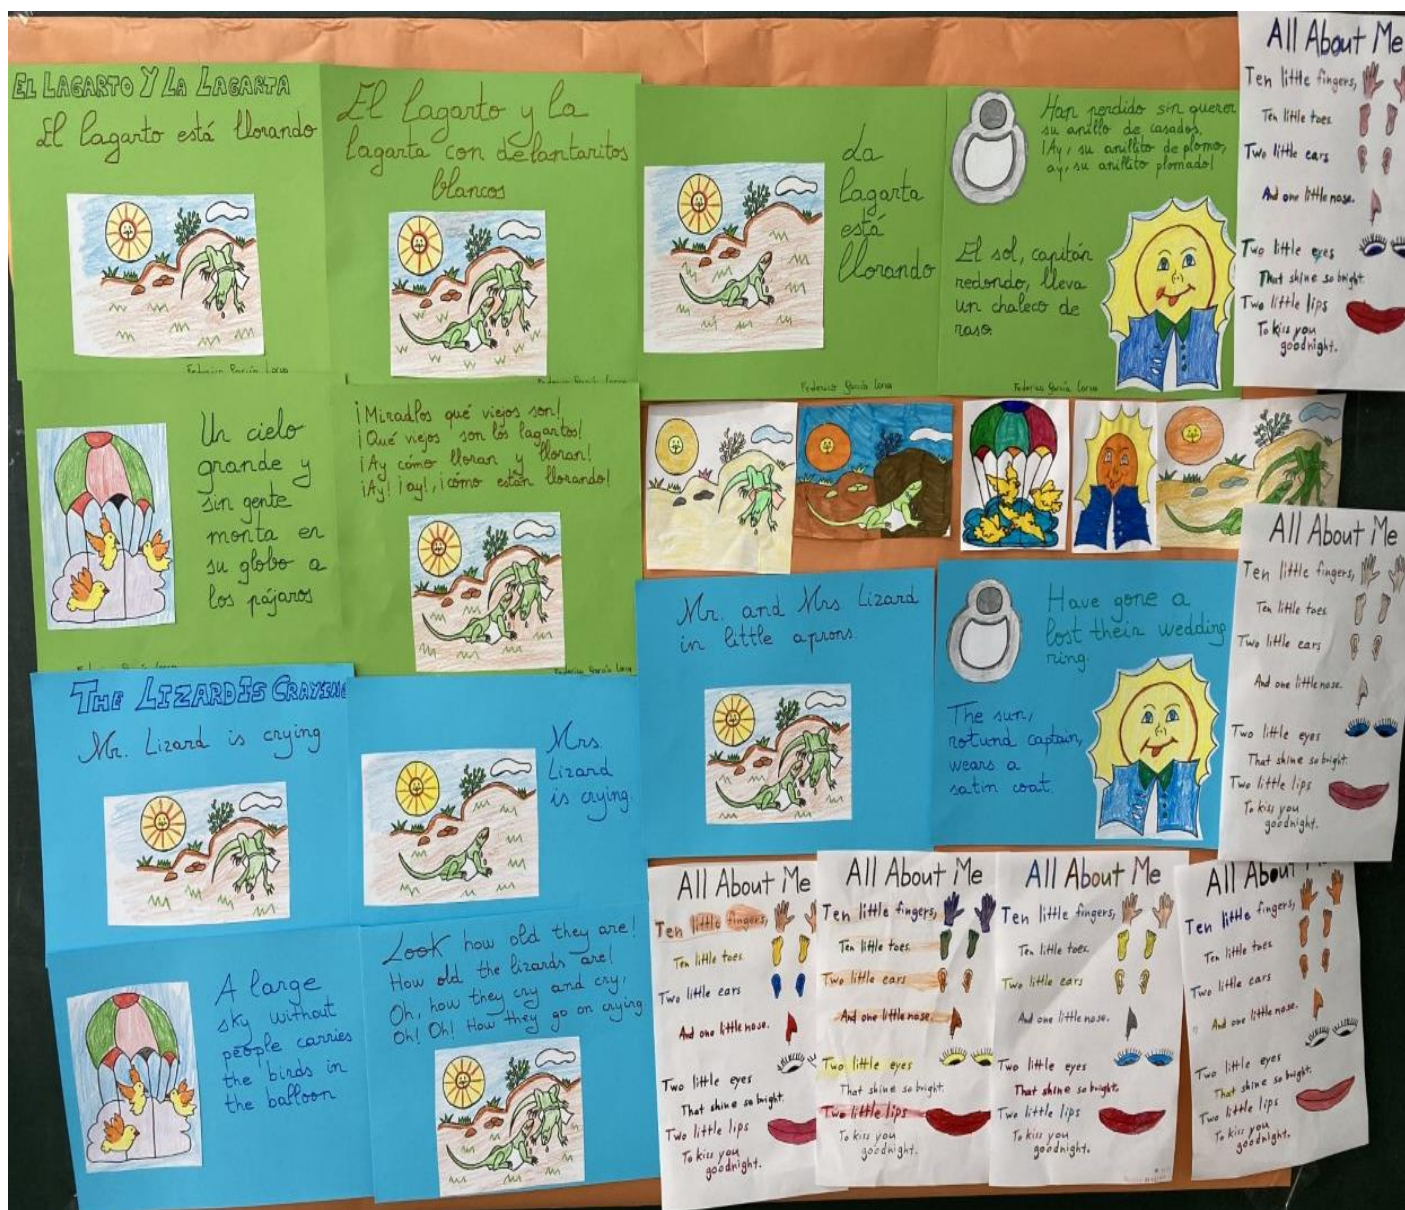 EL LAGARTO Y LA LAGARTA
El lagarto está llorando
Federico García Lorca
El lagarto y la
lagarta con delantaritos
blancos
Federico García Lorca
La
lagarta
está
llorando
Federico García Lorca
Han perdido sin querer
su anillo de casados,
¡Ay, su anillito de plomo,
ay, su anillito plomado!
El sol, capitán
redondo, lleva
un chaleco de
raso.
Federico García Lorca
Un cielo
grande y
sin gente
monta en
su globo a
los pájaros
Federico García Lorca
¡Miradlos qué viejos son!
¡Qué viejos son los lagartos!
¡Ay cómo lloran y lloran!
¡Ay! ¡ay!, ¡cómo están llorando!
Federico García Lorca
THE LIZARD IS CRAYING
Mr. Lizard is crying
Mrs.
Lizard
is crying.
Mr. and Mrs Lizard
in little aprons.
Have gone a
lost their wedding
ring.
The sun,
rotund captain,
wears a
satin coat.
A large
sky without
people carries
the birds in
the balloon
Look how old they are!
How old the lizards are!
Oh, how they cry and cry,
Oh! Oh! How they go on crying
All About Me
Ten little fingers,
Ten little toes
Two little ears
And one little nose.
Two little eyes
That shine so bright.
Two little lips
To kiss you
goodnight.
All About Me
Ten little fingers,
Ten little toes
Two little ears
And one little nose.
Two little eyes
That shine so bright.
Two little lips
To kiss you
goodnight.
All About Me
Ten little fingers,
Ten little toes
Two little ears
And one little nose.
Two little eyes
That shine so bright.
Two little lips
To kiss you
goodnight.
All About Me
Ten little fingers,
Ten little toes.
Two little ears
And one little nose.
Two little eyes
That shine so bright.
Two little lips
To kiss you
goodnight.
All About Me
Ten little fingers,
Ten little toes.
Two little ears
And one little nose.
Two little eyes
That shine so bright.
Two little lips
To kiss you
goodnight.
All About
Ten little fingers,
Ten little toes.
Two little ears
And one little nose.
Two little eyes
That shine so bright.
Two little lips
To kiss you
goodnight.